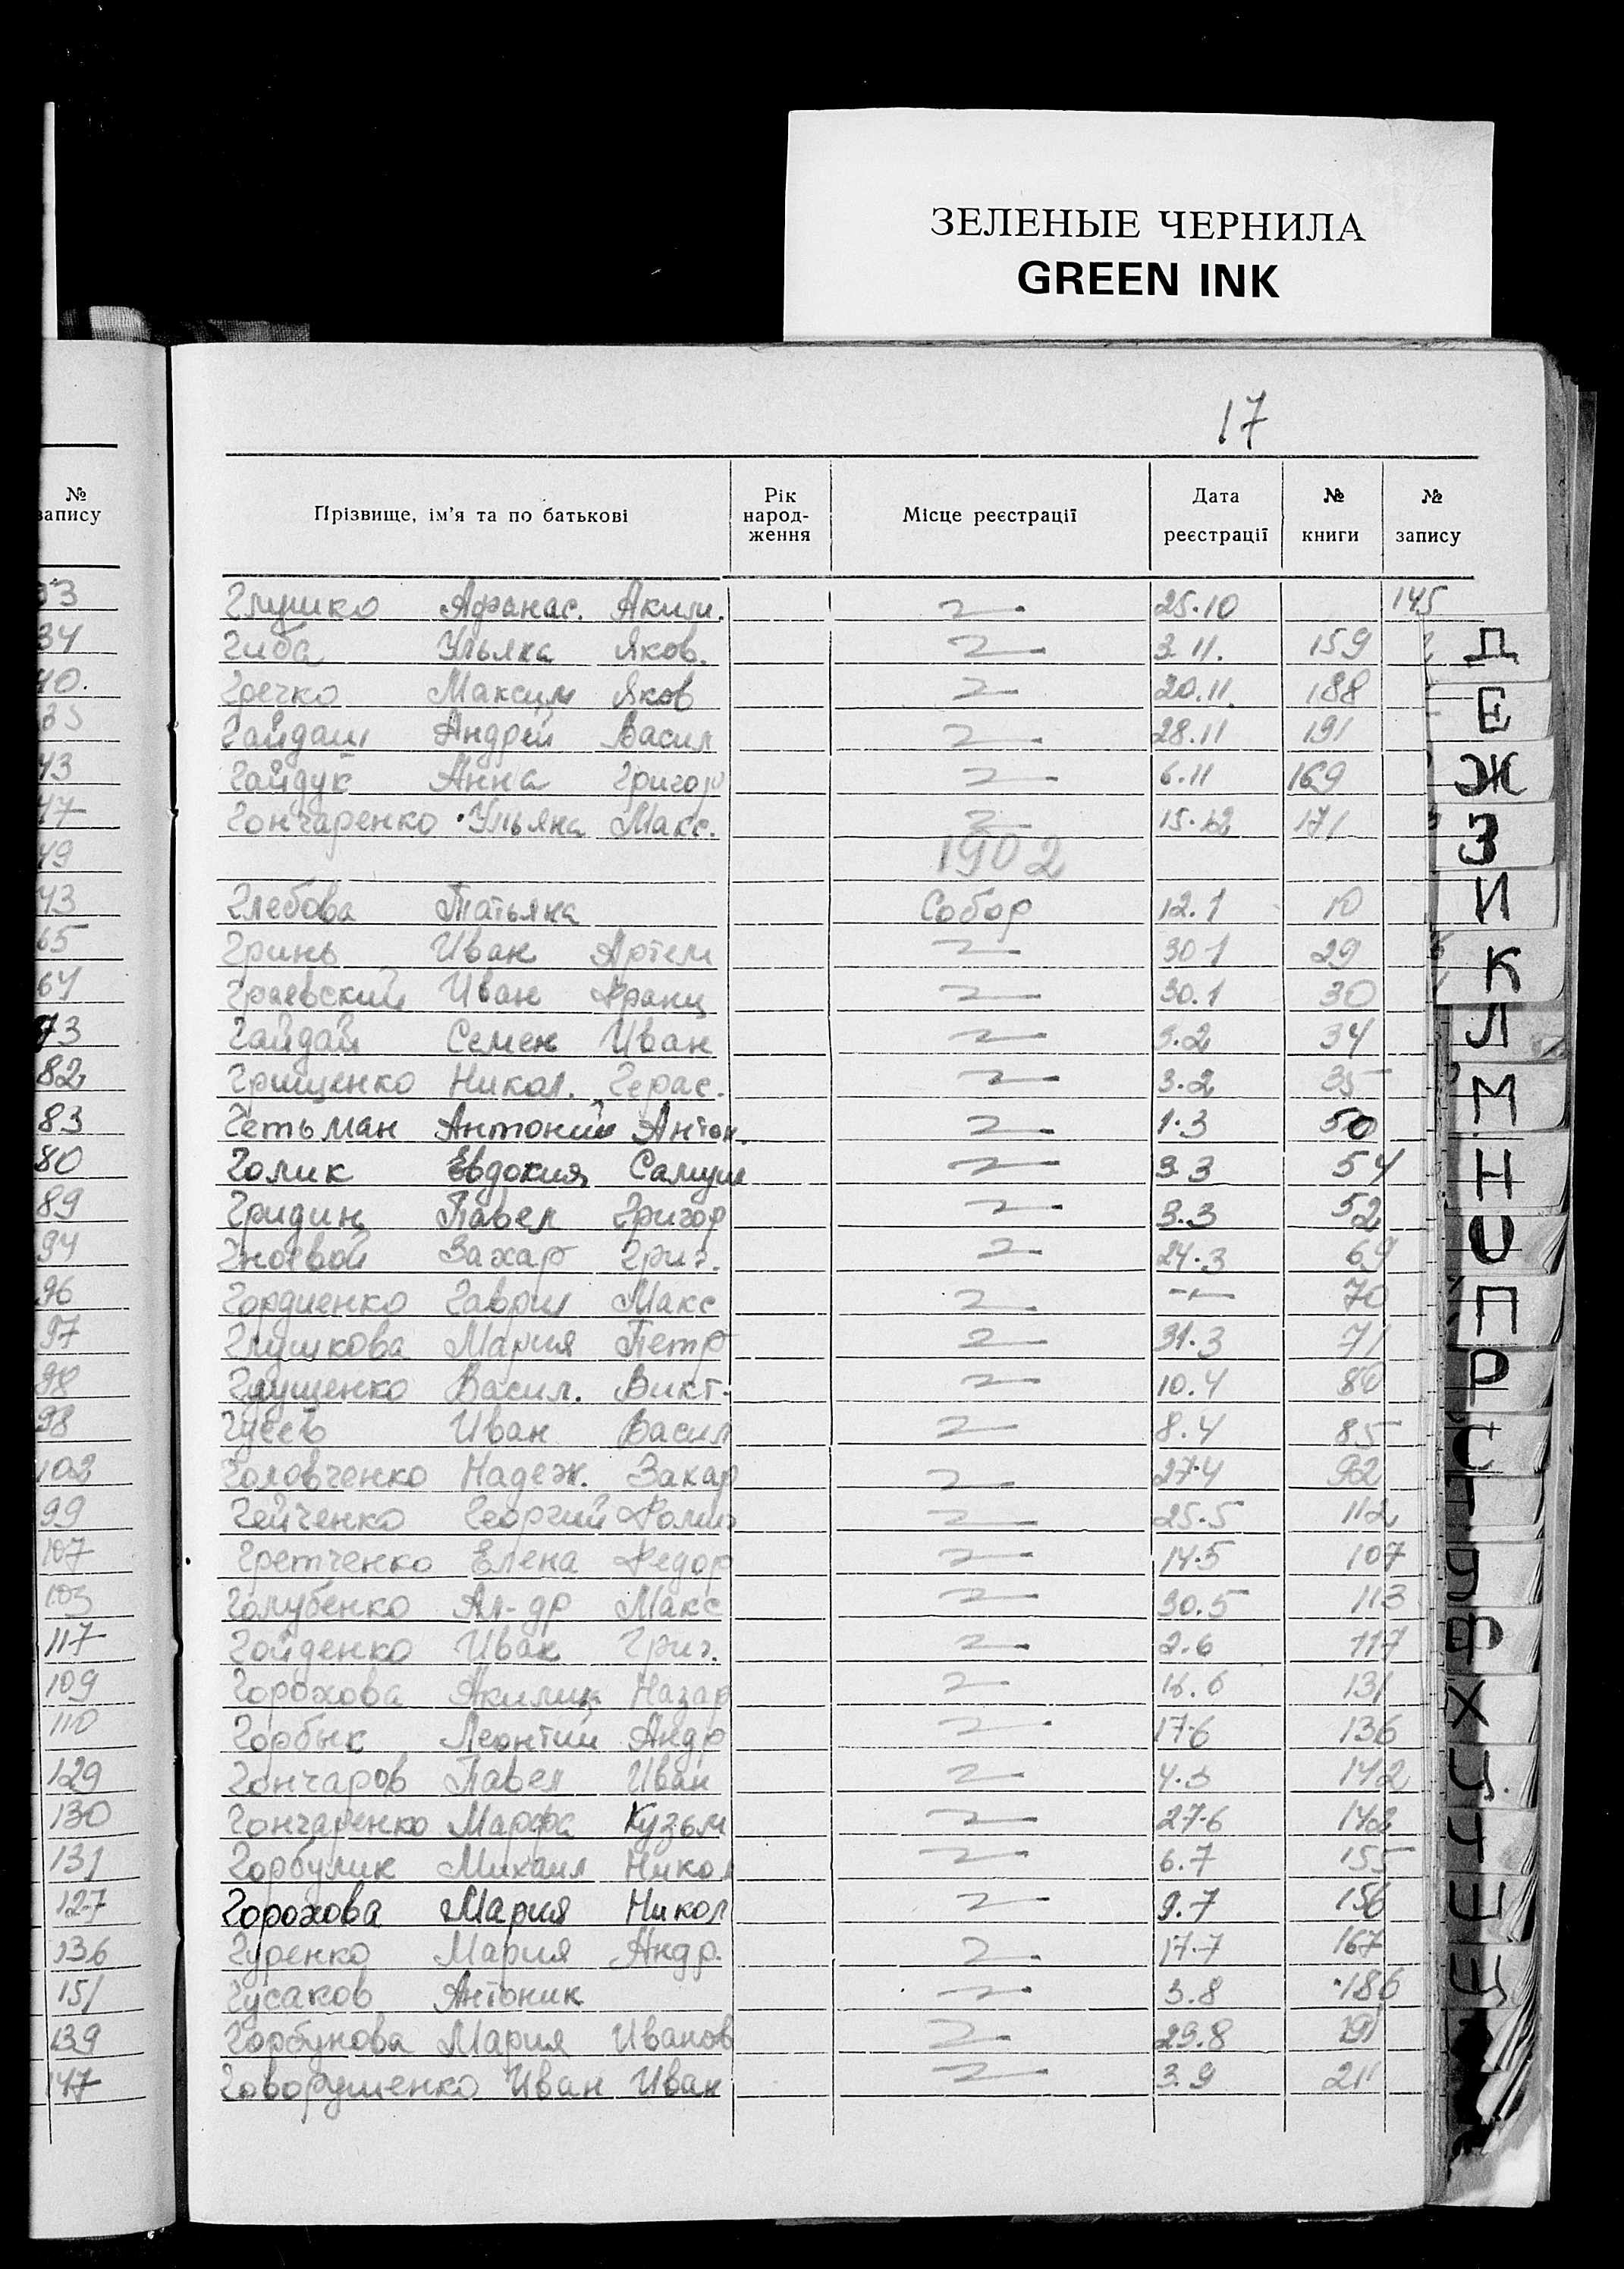 ЗЕЛЕНЫЕ ЧЕРНИЛА
GREEN INK
17
№ запису
Прізвище, ім'я та по батькові
Рік народ-ження
Місце реєстрації
Дата реєстрації
№ книги
№ запису
Глушко Афанас. Аким. 25.10 145
Гиба Ульяна Яков. 3 11. 159
Гречко Максим Яков 20.11 188
Гайдаш Андрей Васил 28.11 191
Гайдук Анна Григор 6.11 169
Гончаренко Ульяна Макс. 15.12 171
1902
Глебова Татьяна Собор 12.1 10
Гринь Иван Артем 30 1 29
Граевский Иван Франц 30.1 30
Гайдай Семен Иван 3.2 34
Грищенко Никол. Герас. 3.2 35
Гетьман Антоний Антон. 1.3 50
Голик Евдокия Самуил 3 3 54
Гридин Павел Григор 3.3 52
Гноевой Захар Григ. 24.3 69
Гордиенко Гаврил Макс -"- 70
Глушкова Мария Петр 31.3 71
Глущенко Васил. Викт. 10.4 84
Гусев Иван Васил 8.4 85
Головченко Надеж. Захар 27.4 92
Гейченко Георгий 25.5 112
Гретченко Елена Федор 14.5 107
Голубенко Ал-др Макс 30.5 113
Гойденко Иван Григ. 2.6 117
Горохова Акилина Назар 16.6 131
Горбык Леонтий Андр 17.6 136
Гончаров Павел Иван 142
Гончаренко Марфа Кузьм 27.6 142
Горбулик Михаил Никол 6.7 155
Горохова Мария Никол 9.7 156
Гуренко Мария Андр. 17.7 167
Гусаков Антоник 3.8 186
Горбунова Мария Иванов 29.8 191
Говорушенко Иван Иван 3.9 211
33
34
40.
35
43
47
49
43
65
64
73
82
83
80
89
94
96
97
98
98
102
99
107
103
117
109
110
129
130
131
127
136
151
139
147
Д
Е
Ж
З
И
К
Л
М
Н
О
П
Р
С
Т
У
Ф
Х
Ц.
Ч
Ш
Щ